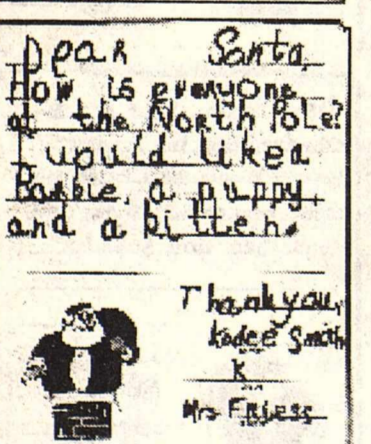 Dear Santa,
How is everyone
at the North Pole?
I would like a
Barbie, a puppy
and a kitten.
Thank you,
Kadee Smith
K
Mrs Friess